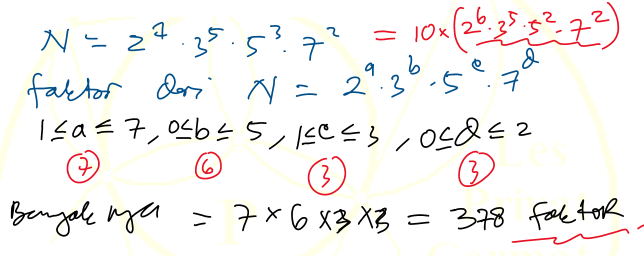 N = 2⁷ · 3⁵ · 5³ · 7² = 10 × (2⁶ · 3⁵ · 5² · 7²)
faktor dari N = 2ᵃ · 3ᵇ · 5ᶜ · 7ᵈ
1 ≤ a ≤ 7, 0 ≤ b ≤ 5, 1 ≤ c ≤ 3, 0 ≤ d ≤ 2
7 6 3 3
Banyaknya = 7 × 6 × 3 × 3 = 378 faktor